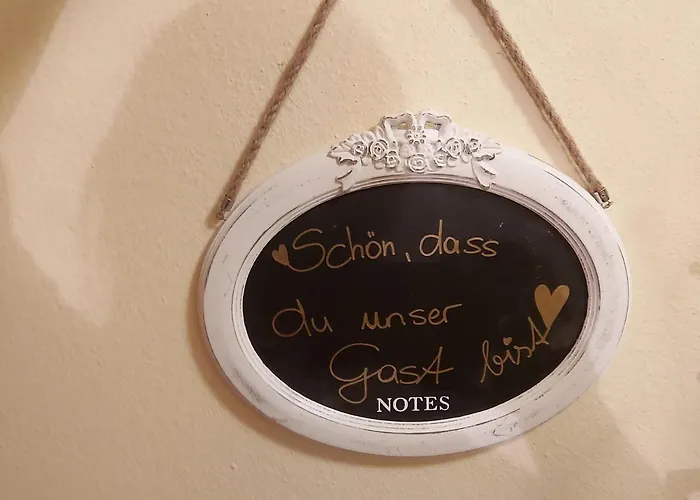 Schön, dass
du unser
Gast bist
NOTES